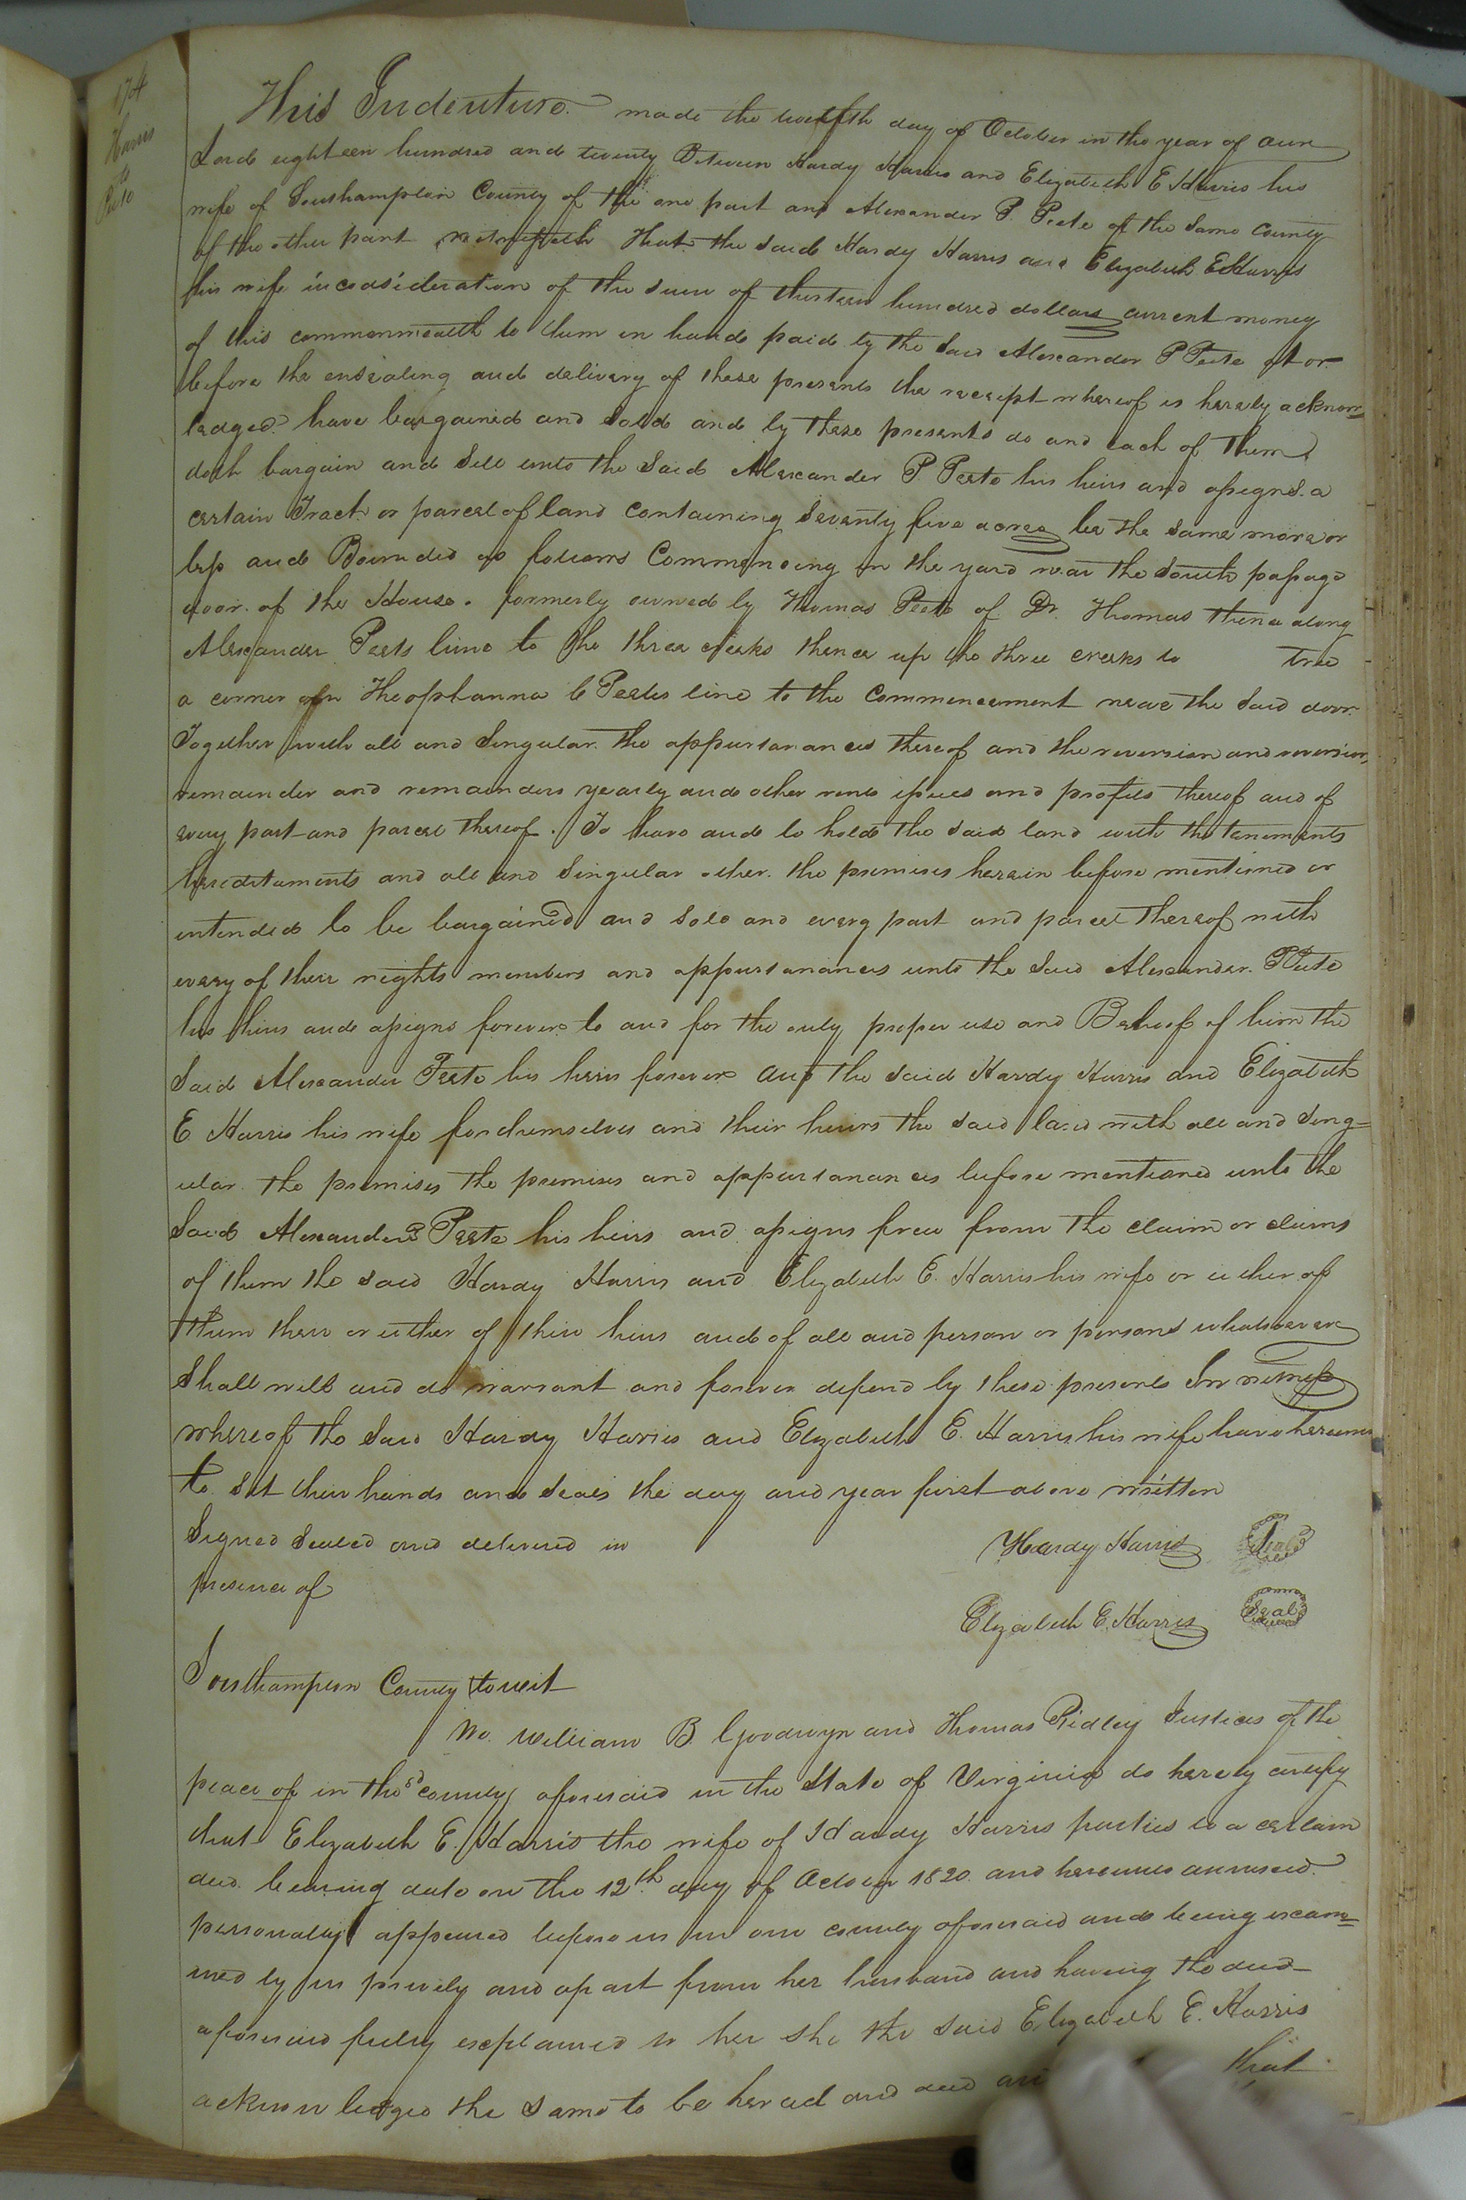 174
Harris
to
Peete
This Indenture made the twelfth day of October in the year of our
Lord eighteen hundred and twenty Between Hardy Harris and Elizabeth E Harris his
wife of Southampton County of the one part and Alexander P. Peete of the same county
of the other part witnesseth that the said Hardy Harris and Elizabeth E Harris
his wife in consideration of the sum of thirteen hundred dollars current money
of this commonwealth to them in hand paid by the said Alexander P Peete at or
before the ensealing and delivery of these presents the receipt whereof is hereby acknow=
ledged have bargained and sold and by these presents do and each of them
doth bargain and sell unto the said Alexander P. Peete his heirs and assigns a
certain Tract or parcel of land containing seventy five acres be the same more or
less and Bounded as follows Commencing in the yard near the south passage
door of the House. formerly owned by Thomas Peete of Dr. Thomas thence along
Alexander Peets line to the three creeks thence up the three creeks to tree
a corner on Theophanna C Peetes line to the commencement near the said door.
Together with all and singular the appurtanances thereof and the reversion and reversions,
remainder and remainders yearly and other rents issues and profits thereof and of
every part and parcel thereof. To have and to hold the said land with the tenements
hereditaments and all and singular other the premises herein before mentioned or
intended to be bargained and sold and every part and parcel thereof with
every of their rights members and appurtanances unto the said Alexander P Peete
his heirs and assigns forever to and for the only proper use and Behoof of him the
said Alexander Peete his heirs forever and the said Hardy Harris and Elizabeth
E Harris his wife for themselves and their heirs the said land with all and sing=
ular the premises the premises and appurtanances before mentioned unto the
said Alexander P Peete his heirs and assigns free from the claim or claims
of them the said Hardy Harris and Elizabeth E. Harris his wife or either of
them their or either of their heirs and of all and person or persons whatsoever
shall will and do warrant and forever defend by these presents In witness
whereof the said Hardy Harris and Elizabeth E. Harris his wife have hereun
to set their hands and seals the day and year first above written
Signed Sealed and delivered in
Hardy Harris Seal
presence of
Elizabeth E. Harris Seal
Southampton County to wit
We William B. Goodwyn and Thomas Ridley Justices of the
peace of in the sd county aforesaid in the State of Virginia do hereby certify
that Elizabeth E. Harris the wife of Hardy Harris parties to a certain
deed bearing date on the 12th day of October 1820 and hereunto annexed
personally appeared before us in our county aforesaid and being exam=
ined by us privily and apart from her husband and having the deed
aforesaid fully explained to her she the said Elizabeth E. Harris
acknowledged the same to be her act and deed that